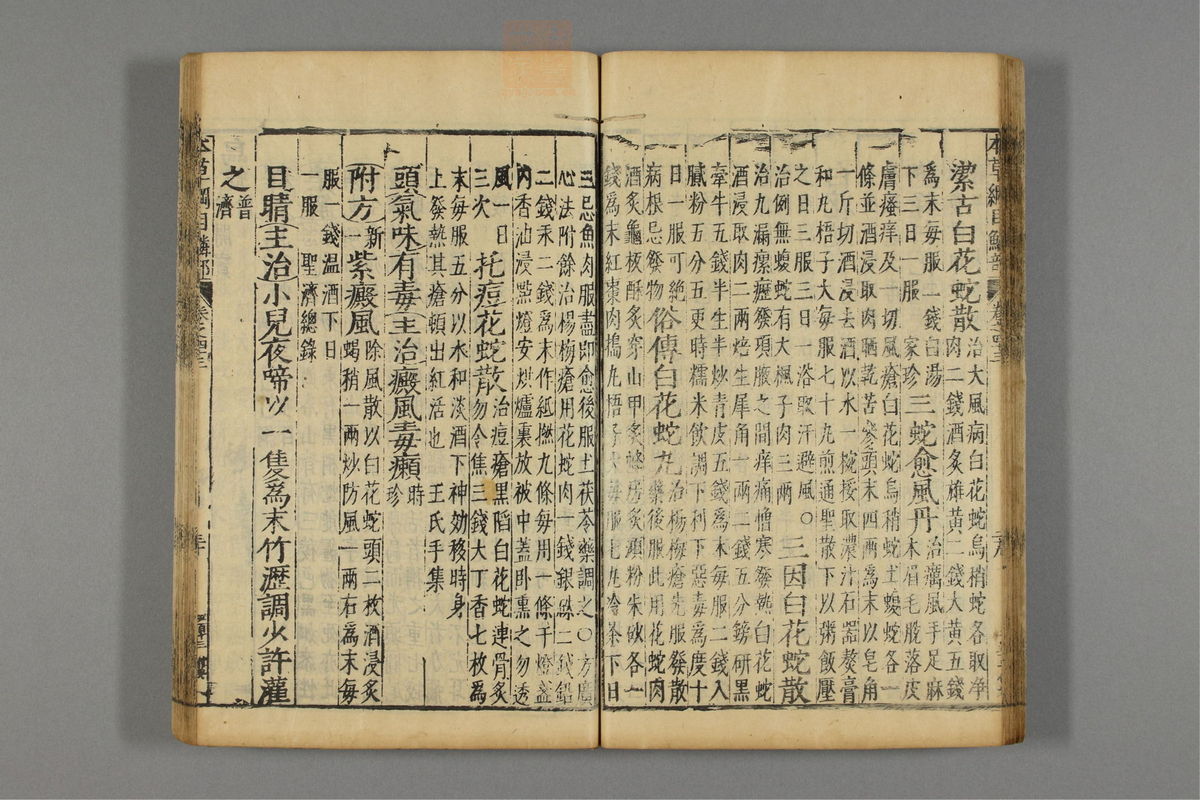 潔古白花蛇散治大風病白花蛇烏稍蛇各取净
肉二錢酒炙雄黃二錢大黃五錢
為末每服二錢白湯
下三日一服家珍三蛇愈風丹治癘風手足麻
木眉毛脫落皮
膚瘙痒及一切風瘡白花蛇烏稍蛇土蝮蛇各一
條並酒浸取肉晒乾苦參頭末四兩為末以皂角
一斤切酒浸去酒以水一椀挼取濃汁石器熬膏
和丸梧子大每服七十丸煎通聖散下以粥飯壓
之日三服三日一浴取汗避風○三因白花蛇散
治例無蝮蛇有大楓子肉三兩
治九漏瘰癧發項腋之間痒痛憎寒發熱白花蛇
酒浸取肉二兩焙生犀角一兩二錢五分鎊研黑
牽牛五錢半生半炒青皮五錢為末每服二錢入
膩粉五分五更時糯米飲調下利下惡毒為度十
日一服可絶俗傳白花蛇丸治楊梅瘡先服發散
病根忌發物
藥後服此用花蛇肉
酒炙龜板酥炙穿山甲炙蜂房炙汞粉朱砂各一
錢為末紅棗肉搗丸梧子大每服七丸冷茶下日
三忌魚肉服盡即愈後服土茯苓藥調之○方廣
心法附餘治楊梅瘡用花蛇肉一錢銀朱二錢鉛
二錢汞二錢為末作紙撚九條每用一條于燈盞
內香油浸點燈安烘爐裏放被中蓋卧熏之勿透
風一日三次托痘花蛇散治痘瘡黑陷白花蛇連骨炙
勿令焦三錢大丁香七枚為
末每服五分以水和淡酒下神効移時身
上發熱其瘡頓出紅活也王氏手集
頭氣味有毒主治癜風毒癩時珍
附方新一紫癜風除風散以白花蛇頭二枚酒浸炙
蝎稍一兩炒防風一兩右為末每
服一錢溫酒下日
一服聖濟總錄
目睛主治小兒夜啼以一隻為末竹瀝調少許灌
之普濟